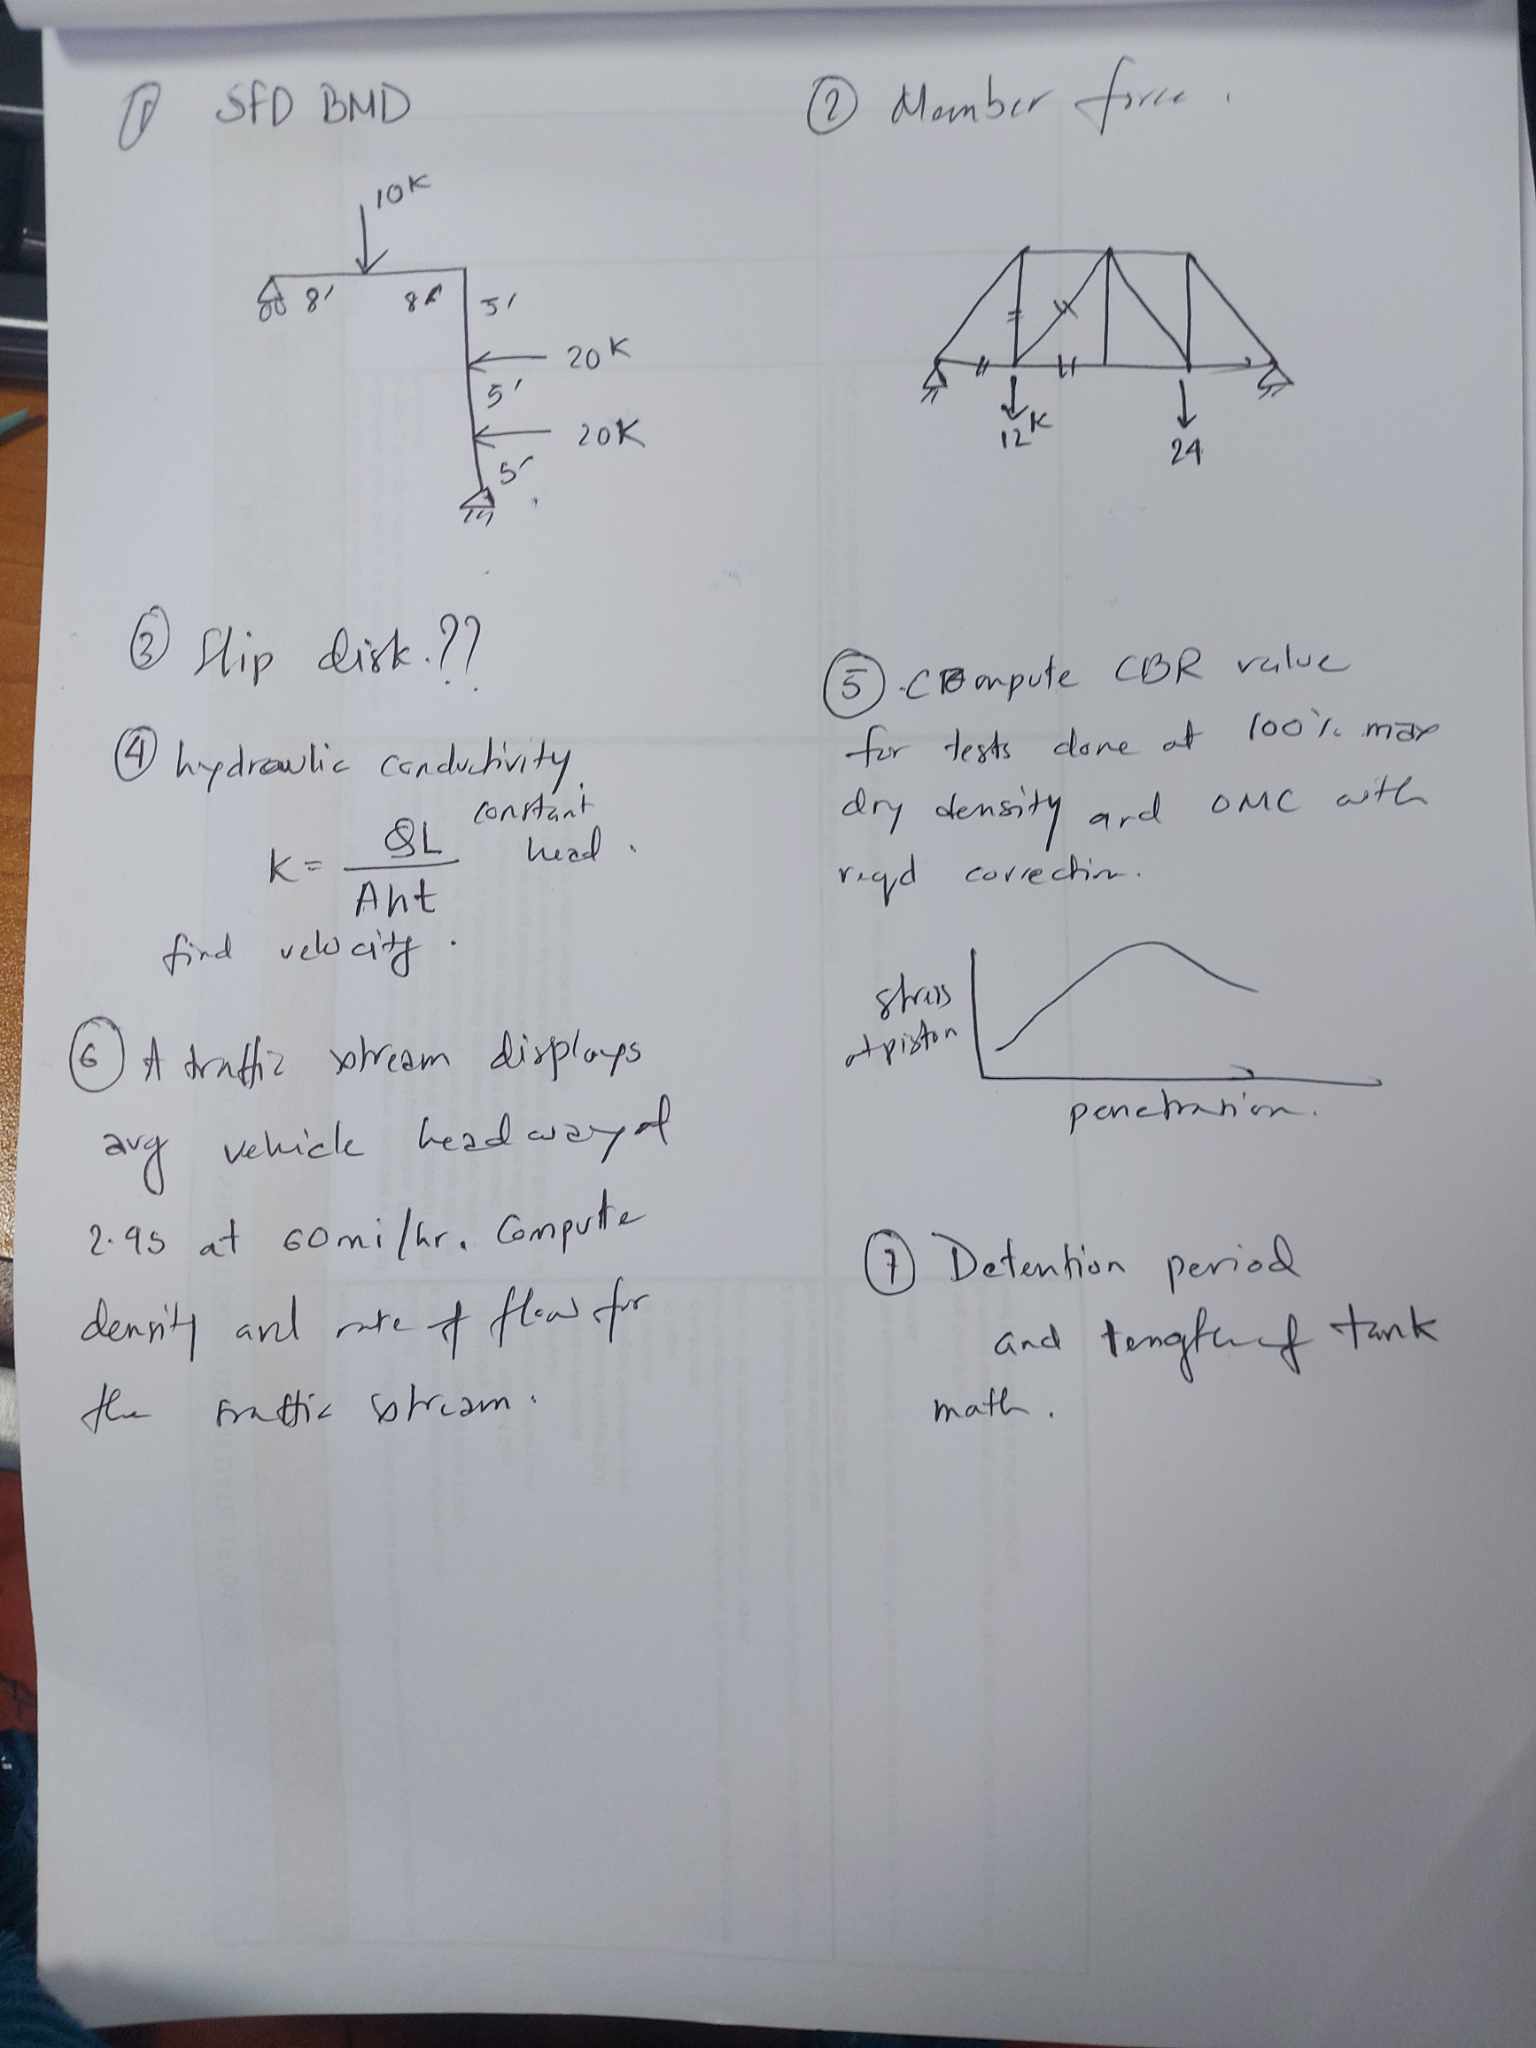 ① SFD BMD
10K
8' 8'
5'
20K
5'
20K
5'
② Member force.
12K
24
③ Slip disk.??
④ hydraulic conductivity
constant
head.
K = QL
Aht
find velocity.
⑤ Compute CBR value
for tests done at 100% max
dry density and OMC with
reqd correction.
stress
at piston
penetration.
⑥ A traffic stream displays
avg vehicle headway of
2.9s at 60mi/hr. Compute
density and rate of flow for
the traffic stream.
⑦ Detention period
and length of tank
math.